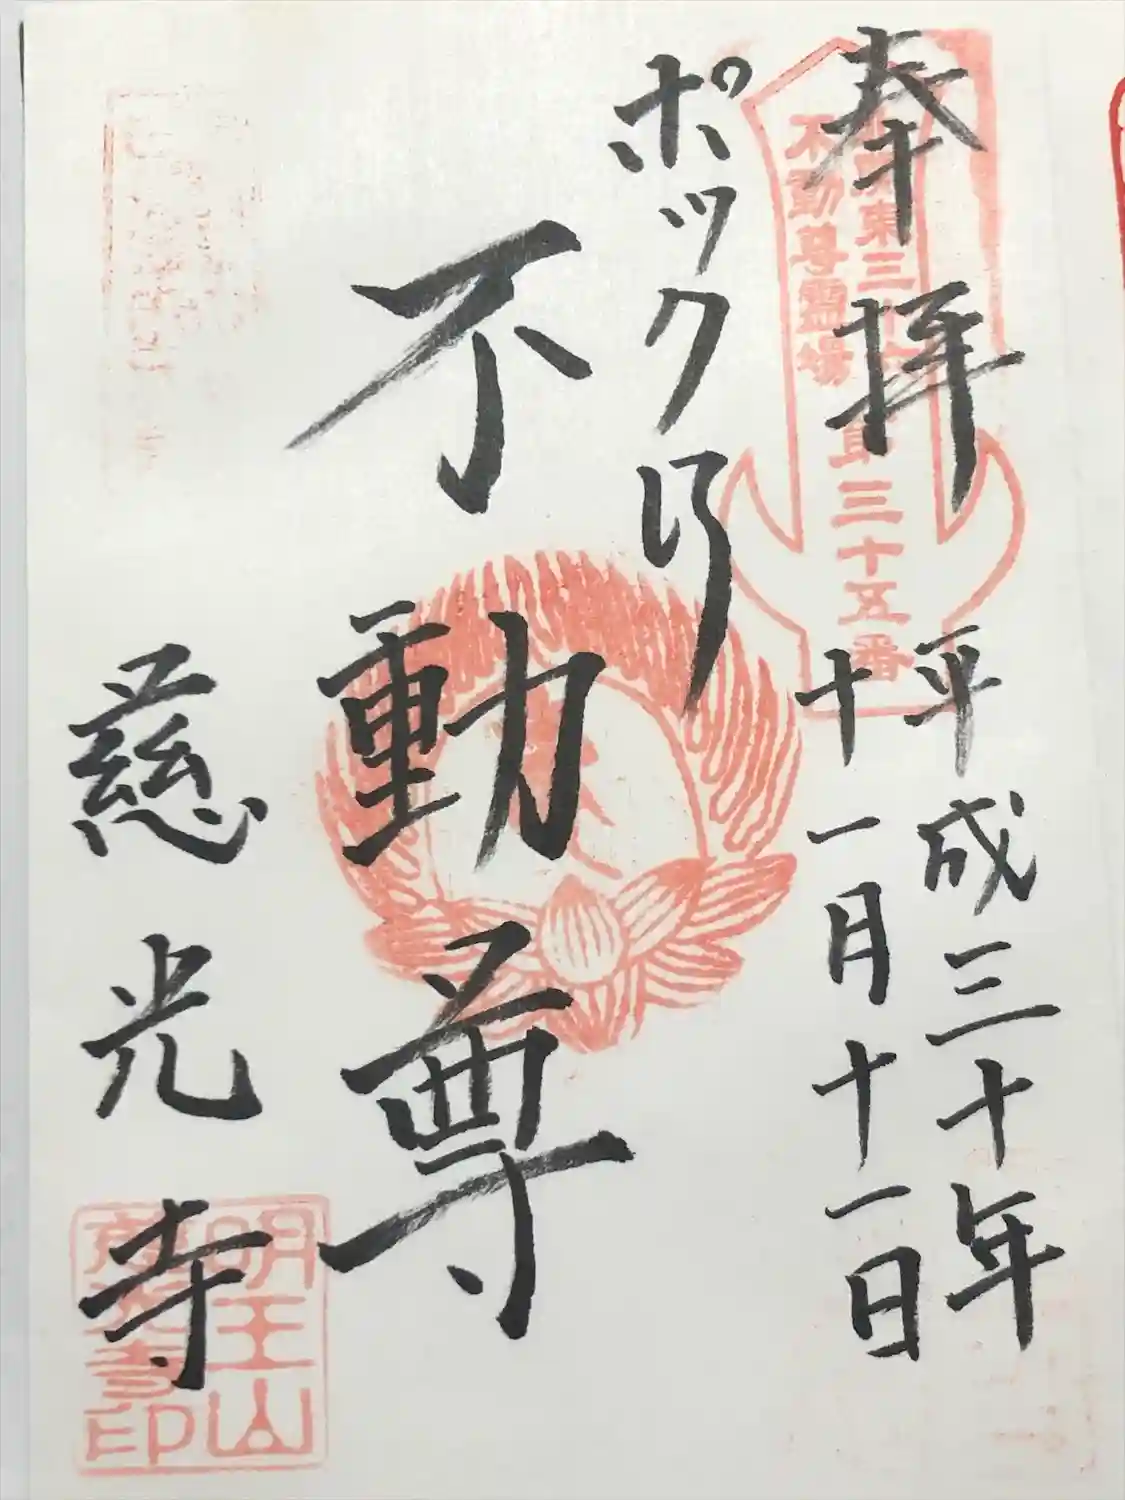 奉拝
平成三十年
十一月十一日
不動尊霊場
第三十五番
ポックリ
不動尊
慈光寺
明王山
慈光寺印